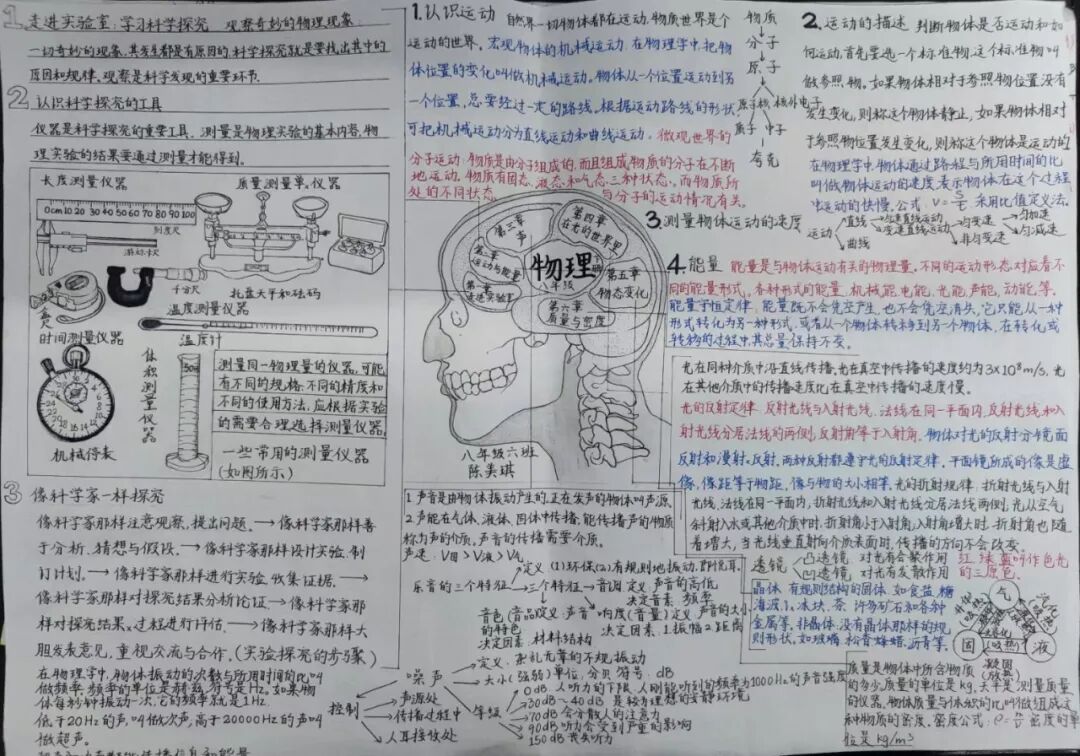 1 走进实验室:学习科学探究 观察奇妙的物理现象:
一切奇妙的现象,其发生都是有原因的,科学探究就是要找出其中的
原因和规律,观察是科学发现的重要环节.
2 认识科学探究的工具
仪器是科学探究的重要工具,测量是物理实验的基本内容,物
理实验的结果要通过测量才能得到.
长度测量仪器
质量测量单仪器
0cm 10 20 30 40 50 60 70 80 90 100
刻度尺
游标卡尺
千分尺
托盘天平和砝码
卷尺
温度测量仪器
温度计
时间测量仪器
机械停表
体积测量仪器
测量同一物理量的仪器,可能
有不同的规格,不同的精度和
不同的使用方法,应根据实验
的需要合理选择测量仪器.
一些常用的测量仪器
(如图所示)
3 像科学家一样探究
像科学家那样注意观察,提出问题.→像科学家那样善
于分析.猜想与假设.→像科学家那样设计实验.制
订计划.→像科学家那样进行实验.收集证据.→
像科学家那样对探究结果分析论证→像科学家那
样对探究结果,过程进行评估.→像科学家那样大
胆发表意见,重视交流与合作.(实验探究的步骤)
在物理学中,物体振动的次数与所用时间的比叫
做频率.频率的单位是赫兹,符号是Hz.如果物
体每秒钟振动一次,它的频率就是1Hz.
低于20Hz的声叫做次声,高于20000Hz的声叫
做超声.
1.认识运动 自然界一切物体都在运动,物质世界是个
运动的世界.宏观物体的机械运动.在物理学中,把物
体位置的变化叫做机械运动.物体从一个位置运动到另
一个位置,总要经过一定的路线.根据运动路线的形状
可把机械运动分为直线运动和曲线运动.微观世界的
分子运动:物质是由分子组成的,而且组成物质的分子在不断
地运动,物质有固态、液态和气态三种状态.而物质所
处的不同状态与分子的运动情况有关.
物质
分子
原子
原子核 核外电子
质子 中子
夸克
第三章 声
第四章 在光的世界里
第二章 运动与能量
第一章 走进实验室
第五章 物态变化
第六章 质量与密度
物理
八年级
八年级六班
陈美琪
2.运动的描述 判断物体是否运动和如
何运动,首先要选一个标准物,这个标准物叫
做参照物.如果物体相对于参照物位置没有
发生变化,则称这个物体静止,如果物体相对
于参照物位置发生变化,则称这个物体是运动的
在物理学中,物体通过路程与所用时间的比
叫做物体运动的速度,表示物体在这个过程
中运动的快慢.公式:V=s/t 采用比值定义法.
3.测量物体运动的速度
运动 直线→匀速直线运动
变速直线运动→匀变速→匀加速
匀减速
非匀变速
曲线
4.能量 能量是与物体运动有关的物理量.不同的运动形态对应着不
同的能量形式.各种形式的能量:机械能,电能,光能,声能,动能,等.
能量守恒定律:能量既不会凭空产生,也不会凭空消失,它只能从一种
形式转化为另一种形式,或者从一个物体转移到另一个物体,在转化或
转移的过程中,其总量保持不变.
光在同种介质中沿直线传播,光在真空中传播的速度约为3×10⁸m/s.光
在其他介质中的传播速度比在真空中传播的速度慢.
光的反射定律:反射光线与入射光线,法线在同一平面内,反射光线和入
射光线分居法线的两侧,反射角等于入射角.物体对光的反射分为镜面
反射和漫射.反射,两种反射都遵守光的反射定律.平面镜所成的像是虚
像,像距等于物距,像与物的大小相等.光的折射规律:折射光线与入射
光线,法线在同一平面内,折射光线和入射光线分居法线两侧,光从空气
斜射入水或其他介质中时.折射角小于入射角,入射角增大时.折射角也随
着增大,当光线垂直射向介质表面时,传播的方向不会改变.
透镜 凸透镜 对光有会聚作用
凹透镜 对光有发散作用
红绿蓝叫作色光
的三原色.
晶体:有规则结构的固体.如食盐,糖
海波,冰块,萘,许多矿石和各种
金属等.非晶体:没有晶体那样的规
则形状,如玻璃,松香,蜂蜡,沥青等.
气
固
液
凝固
质量是物体中所含物质
的多少,质量的单位是kg.天平是测量质量
的仪器,物体质量与体积的比叫做组成这
种物质的密度.密度公式:ρ=m/v 密度的单
位是kg/m³
1.声音是由物体振动产生的,正在发声的物体叫声源
2.声能在气体.液体.固体中传播.能传播声的物质
称为声的介质.声音的传播需要介质.
声速:V固>V液>V气
定义:(1)环保(2)有规则地振动,即悦耳
乐音的三个特征→三个特征→音调 定义:声音的高低
决定音素:频率
音色(音品)定义:声音的特色
决定因素:材料结构
响度(音量)定义:声音的大小
决定因素:1.振幅2.距离
噪声
定义:杂乱无章的不规振动
大小(强弱)单位:分贝 符号:dB
等级
0dB 人听力的下限,人刚能听到的频率为1000Hz的声音强度
30dB~40dB是较为理想的安静环境
70dB会分散人的注意力
90dB听力会受到严重的影响
150dB丧失听力
控制
声源处
传播过程中
人耳接收处